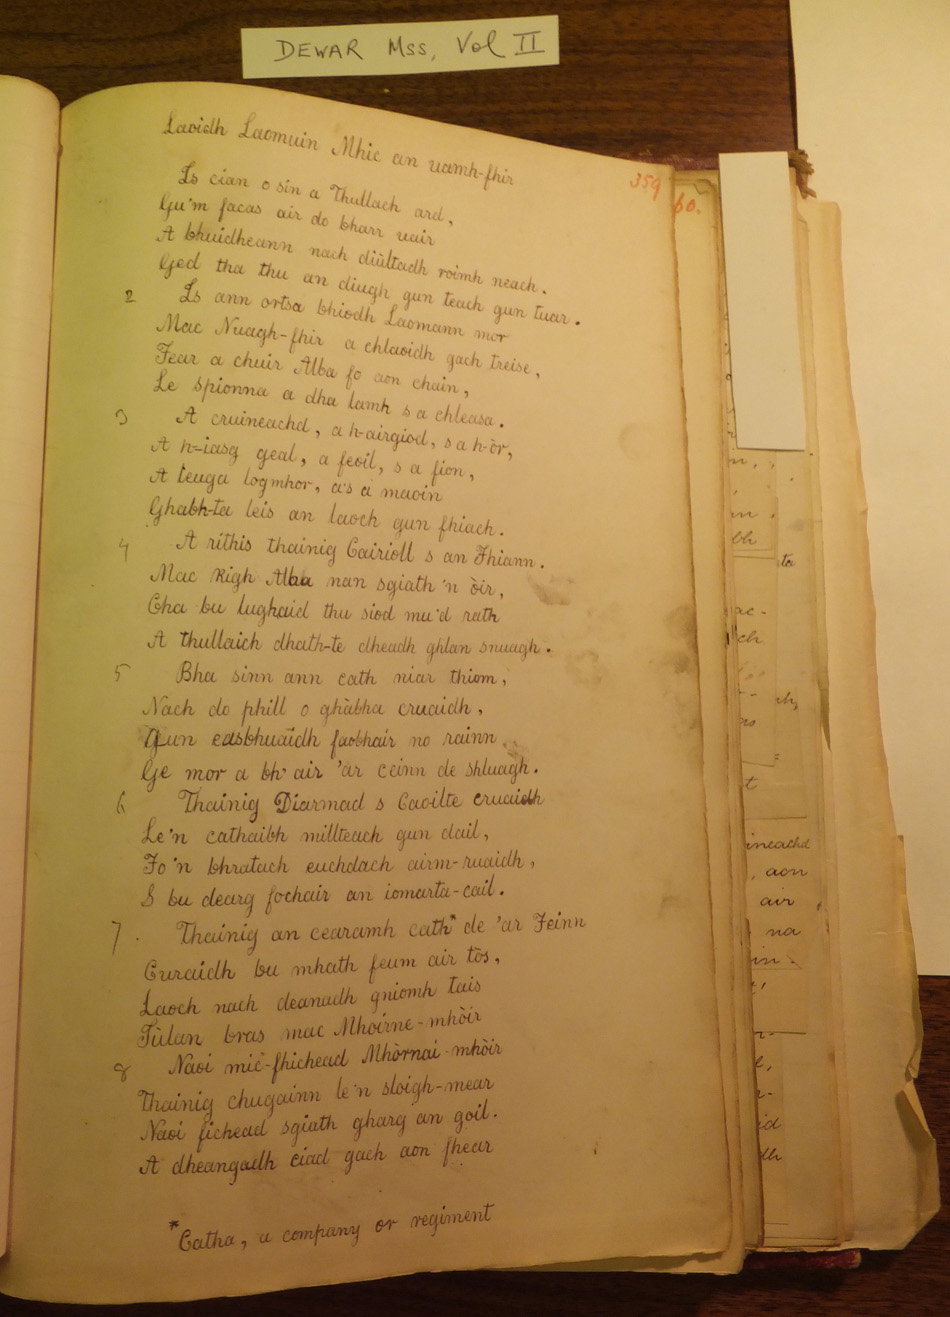 DEWAR Mss, Vol II
Laoidh Laomuin Mhic an uamh-fhir
359
60.
Is cian o sin a Thullach ard,
Gu'm facas air do bharr uair
A bhuidheann nach diùltadh roimh neach.
Ged tha thu an diugh gun teach gun tuar.
2 Is ann ortsa bhiodh Laomann mor
Mac Nuagh-fhir a chlaoidh gach treise,
Fear a chuir Alba fo aon chain,
Le spionna a dha lamh s a chleasa.
3 A cruineachd, a h-airgiod, s a h-òr,
A h-iasg geal, a feoil, s a fion,
A teuga logmhor, a's a maoin
Ghabh-ta leis an laoch gun fhiach.
4 A rithis thainig Cairioll s an Fhiann.
Mac Righ Alba nan sgiath 'n òir,
Cha bu lughaid thu siod mu'd rath
A thullaich dhath-te dheadh ghlan snuagh.
5 Bha sinn ann cath niar thiom,
Nach do phill o ghàbha cruaidh,
Gun easbhuaidh faobhair no rainn
Ge mor a bh' air 'ar ceinn de shluagh.
6 Thainig Diarmad s Caoilte cruaidh
Le'n cathaibh millteach gun dail,
Fo 'n bhratach euchdach airm-ruaidh,
S bu dearg fochair an iomarta-cail.
7. Thainig an cearamh cath* de 'ar Feinn
Curaidh bu mhath feum air tòs,
Laoch nach deanadh gniomh tais
Tùlan bras mac Mhoirne-mhòir
8 Naoi mic-fhichead Mhòrnai-mhòir
Thainig chugainn le'n sloigh-mear
Naoi fichead sgiath gharg an goil.
A dheangadh ciad gach aon fhear
*Catha, a company or regiment
ineachd
aon
air
na